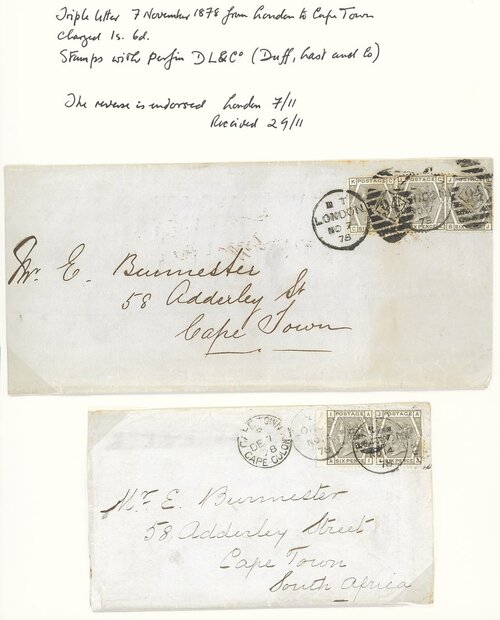 Triple letter 7 November 1878 from London to Cape Town
charged 1s. 6d.
Stamps with perfin DL&Co (Duff, Last and Co)
The reverse is endorsed London 7/11
Received 29/11
LONDON
NO 7
78
POSTAGE
SIX PENCE
Mr. E. Burmester
58 Adderley St
Cape Town
CAPE TOWN
DE 7
78
CAPE COLONY
POSTAGE POSTAGE
SIX PENCE SIX PENCE
Mr. E. Burmester
58 Adderley Street
Cape Town
South Africa